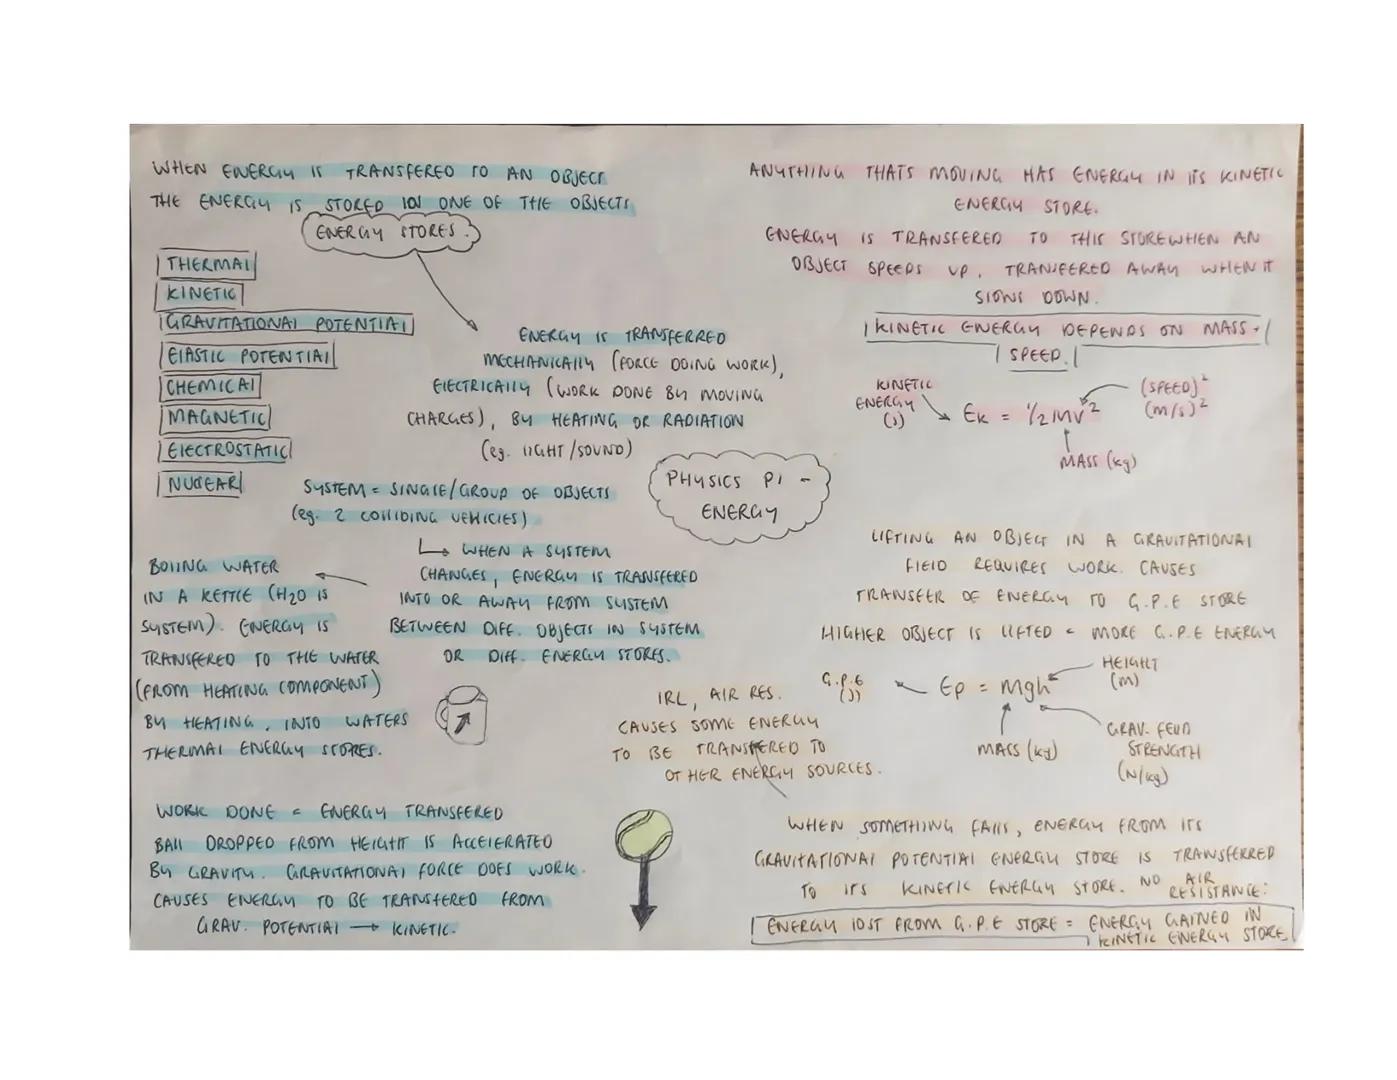 WHEN ENERGY IS TRANSFERED TO AN OBJECT
THE ENERGY IS STORED IN ONE OF THE OBJECTS
ENERGY STORES.
THERMAL
KINETIC
GRAVITATIONAL POTENTIAL
ELASTIC POTENTIAL
CHEMICAL
MAGNETIC
ELECTROSTATIC
NUCLEAR
ENERGY IS TRANSFERRED
MECHANICALLY (FORCE DOING WORK),
ELECTRICALLY (WORK DONE BY MOVING
CHARGES), BY HEATING OR RADIATION
(eg. LIGHT/SOUND)
SYSTEM = SINGLE/GROUP OF OBJECTS
(eg. 2 COLLIDING VEHICLES)
↳ WHEN A SYSTEM
CHANGES, ENERGY IS TRANSFERED
INTO OR AWAY FROM SYSTEM
BETWEEN DIFF. OBJECTS IN SYSTEM
OR DIFF. ENERGY STORES.
BOILING WATER
IN A KETTLE (H2O IS
SYSTEM). ENERGY IS
TRANSFERED TO THE WATER
(FROM HEATING COMPONENT)
BY HEATING, INTO WATERS
THERMAL ENERGY STORES.
WORK DONE = ENERGY TRANSFERED
BALL DROPPED FROM HEIGHT IS ACCELERATED
BY GRAVITY. GRAVITATIONAL FORCE DOES WORK.
CAUSES ENERGY TO BE TRANSFERED FROM
GRAV. POTENTIAL → KINETIC.
PHYSICS P1 -
ENERGY
ANYTHING THATS MOVING HAS ENERGY IN ITS KINETIC
ENERGY STORE.
ENERGY IS TRANSFERED TO THIS STORE WHEN AN
OBJECT SPEEDS UP, TRANSFERED AWAY WHEN IT
SLOWS DOWN.
KINETIC ENERGY DEPENDS ON MASS +
SPEED.
KINETIC
ENERGY
(J)
Ek = ½mv²
(SPEED)²
(m/s)²
MASS (kg)
LIFTING AN OBJECT IN A GRAVITATIONAL
FIELD REQUIRES WORK. CAUSES
TRANSFER OF ENERGY TO G.P.E STORE
HIGHER OBJECT IS LIFTED = MORE G.P.E ENERGY
G.P.E
(J)
Ep = mgh
HEIGHT
(m)
MASS (kg)
GRAV. FEILD
STRENGTH
(N/kg)
IRL, AIR RES.
CAUSES SOME ENERGY
TO BE TRANSFERED TO
OTHER ENERGY SOURCES.
WHEN SOMETHING FALLS, ENERGY FROM ITS
GRAVITATIONAL POTENTIAL ENERGY STORE IS TRANSFERRED
TO ITS KINETIC ENERGY STORE. NO AIR
RESISTANCE:
ENERGY LOST FROM G.P.E STORE = ENERGY GAINED IN
KINETIC ENERGY STORE